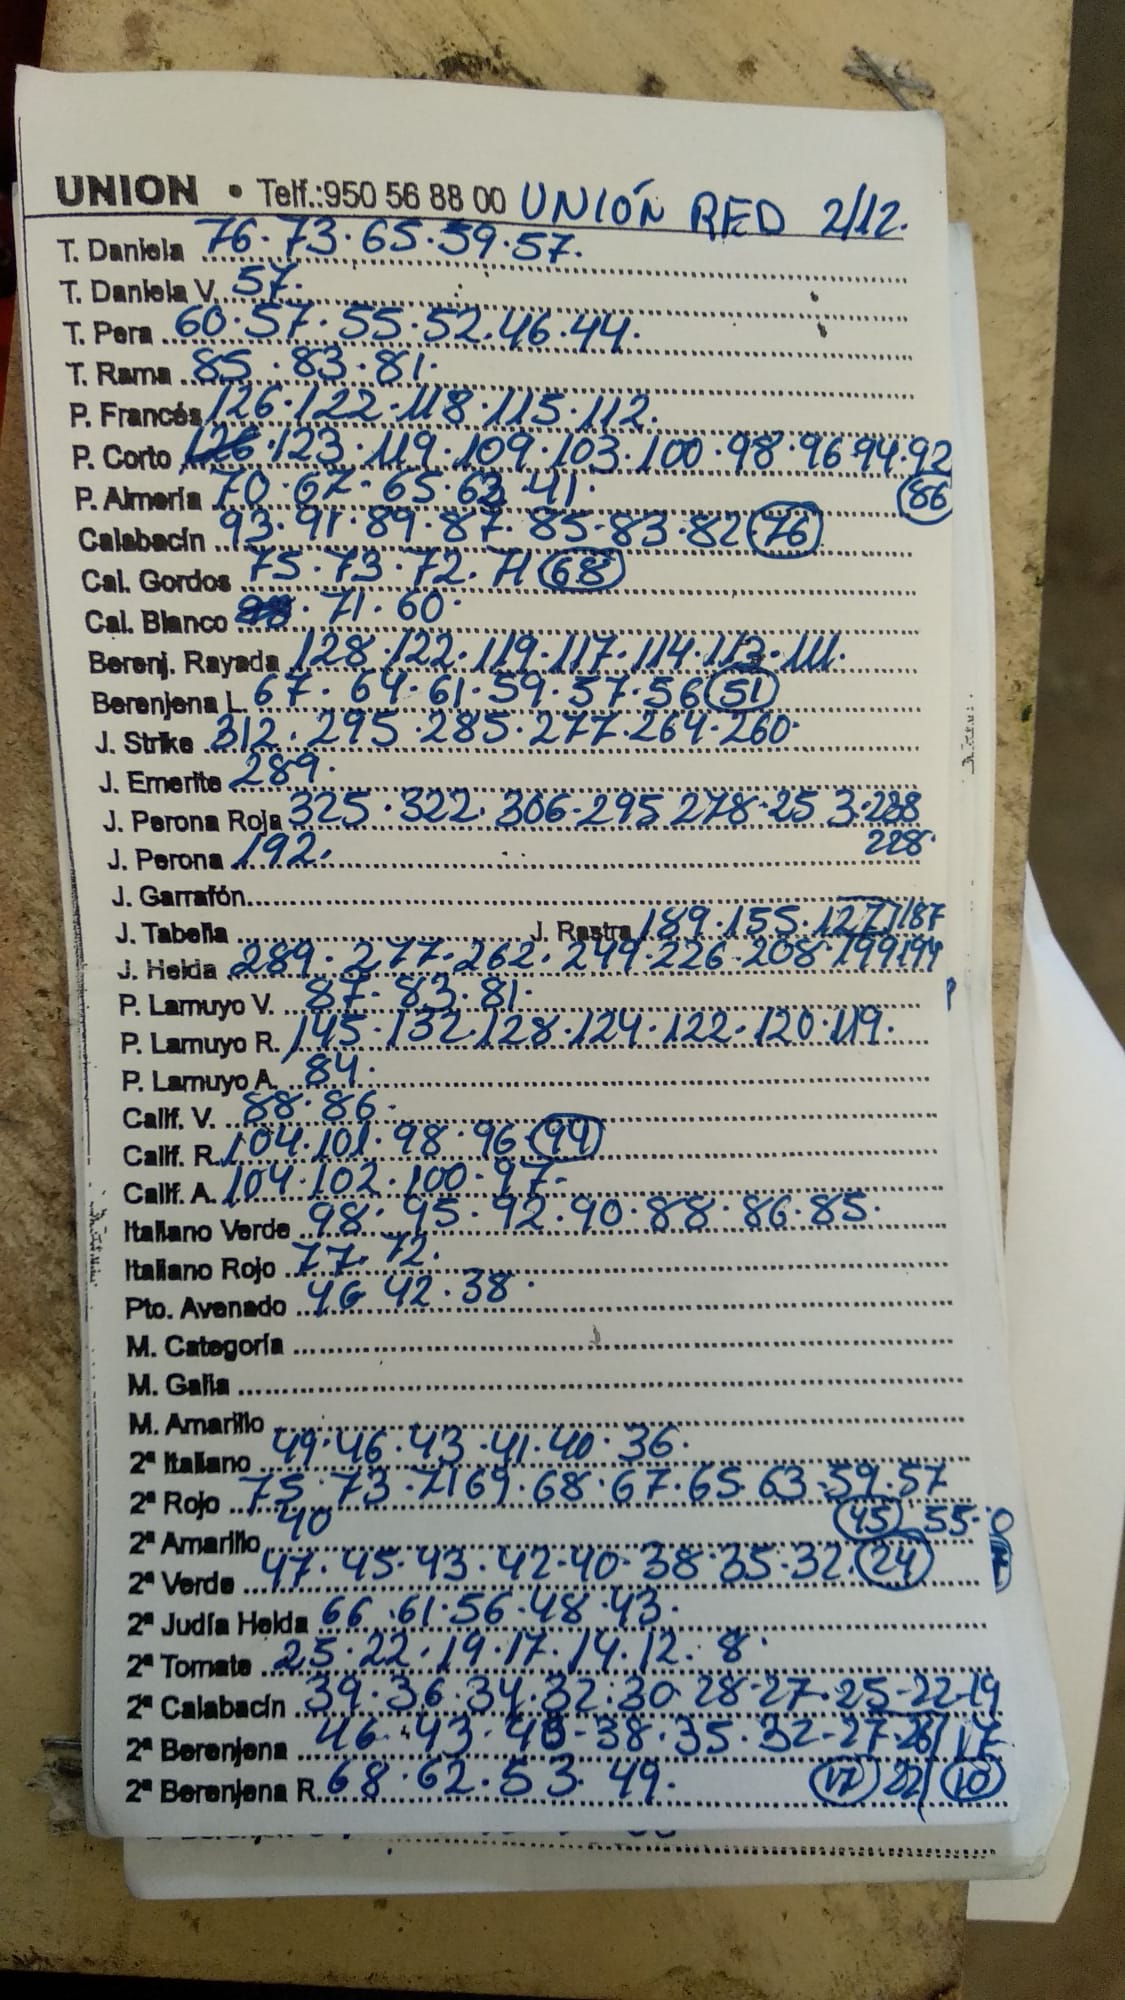 UNION • Telf.:950 56 88 00 UNIÓN RED 2/12.
T. Daniela 76·73·65·59·57.
T. Daniela V. 57.
T. Pera 60·57·55·52·46·44.
T. Rama 85·83·81.
P. Francés 126·122·118·115·112.
P. Corto 126·123·119·109·103·100·98·96 94·92
P. Almería 70·67·65·63·41· 86
Calabacín 93·91·89·87·85·83·82 76
Cal. Gordos 75·73·72·71 68
Cal. Blanco ·71·60·
Berenj. Rayada 128·122·119·117·114·113·111.
Berenjena L. 67·64·61·59·57·56 51
J. Strike 312·295·285·277·264·260·
J. Emerite 289.
J. Perona Roja 325·322·306·295 278·253·238
J. Perona 192. 228·
J. Garrafón
J. Tabella J. Rastra 189·155·127/187
J. Helda 289·277·262·249·226·208·199 194
P. Lamuyo V. 87·83·81·
P. Lamuyo R. 145·132·128·124·122·120·119.
P. Lamuyo A. 84.
Calif. V. 88·86·
Calif. R. 104·101·98·96 94
Calif. A. 104·102·100·97·
Italiano Verde 98·95·92·90·88·86·85·
Italiano Rojo 77·72.
Pto. Avenado 46 42·38·
M. Categoría
M. Galia
M. Amarillo
2ª Italiano 49·46·43·41·40·36.
2ª Rojo 75·73·71 69·68·67·65·63·59·57
2ª Amarillo 40 45 55·
2ª Verde 47·45·43·42·40·38·35·32· 24
2ª Judía Helda 66·61·56·48·43·
2ª Tomate 25·22·19·17·14·12·8·
2ª Calabacín 39·36·34·32·30·28·27·25·22·19
2ª Berenjena 46·43·40·38·35·32·27·26/17
2ª Berenjena R. 68·62·53·49. 17 22/ 10